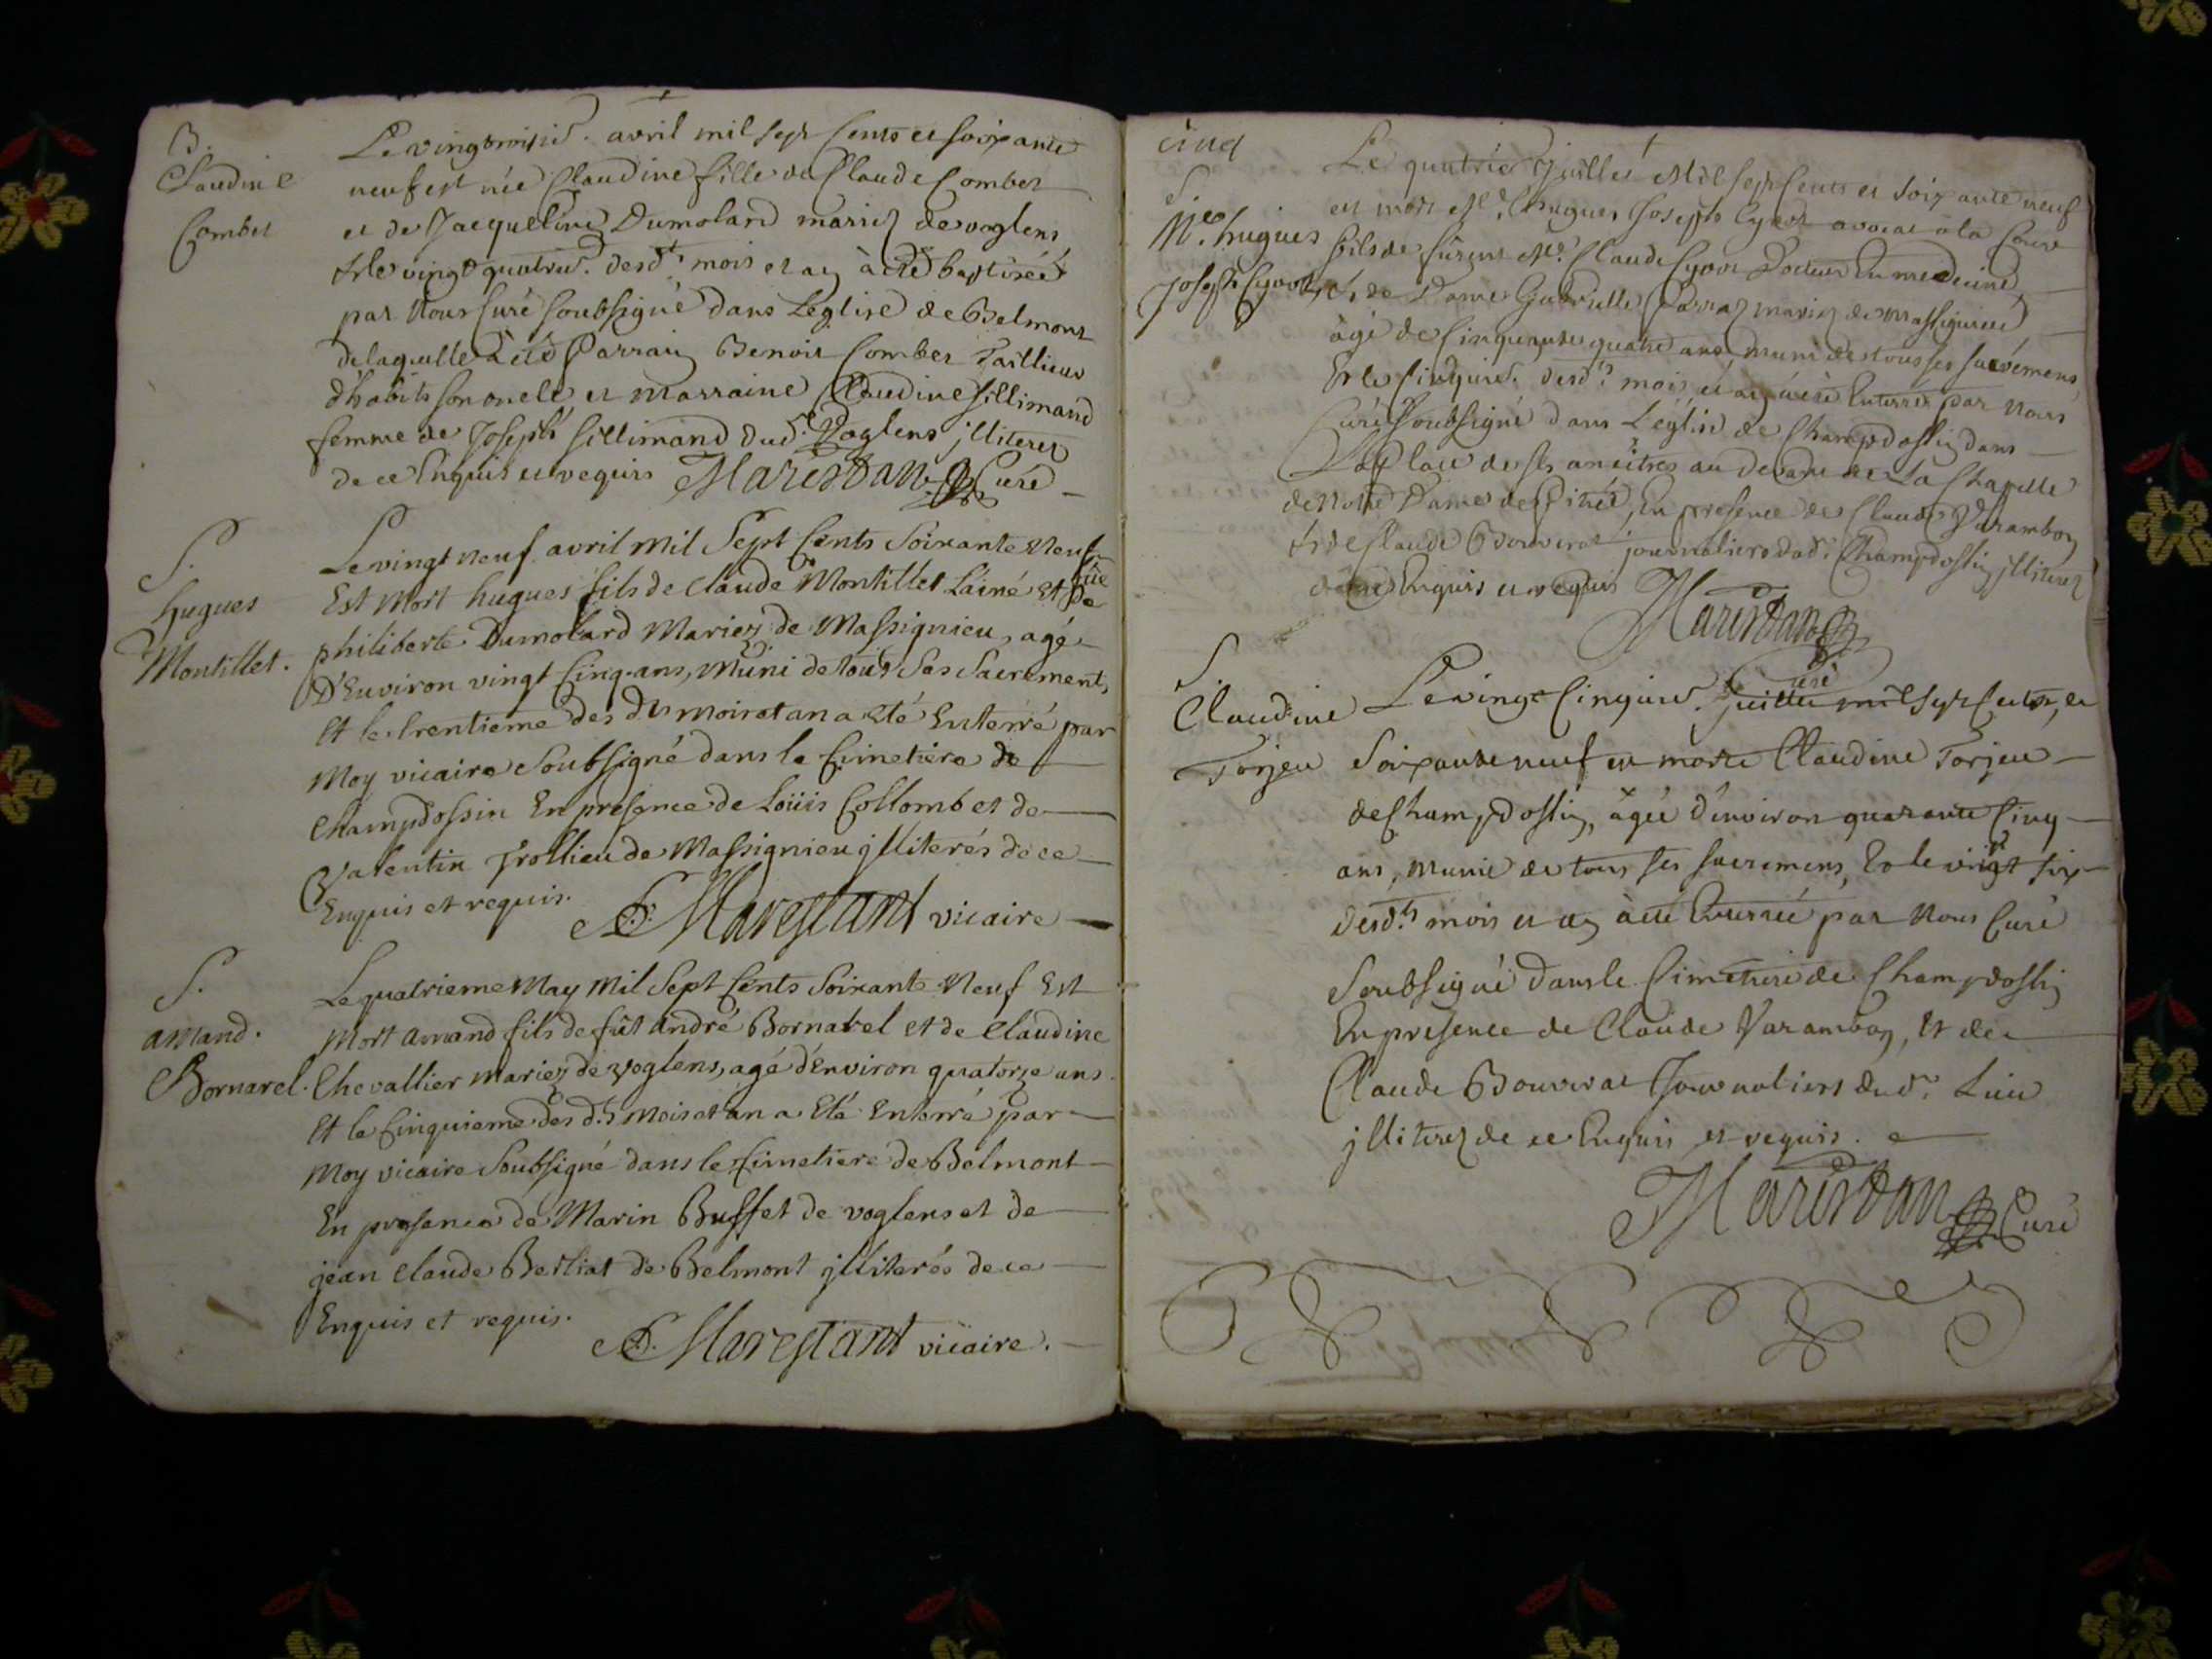 B.
Claudine
Combet
Le vingt troisie. avril mil sept cents et soixante
neuf est née Claudine fille de Claude Combet
et de Jacqueline Dumolard mariez de voglens
et le vingt quatrie. desdts mois et an à été baptisée
par Nous Curé soubsigné dans L'eglise de Belmont
de laquelle à été Parrain Benoit Combet Tailleur
d'habits son oncle et marraine Claudine sillimand
femme de Joseph sillimand dud. Voglens illiterez
de ce Enquis et requis Marestan Curé
S.
hugues
Montillet.
Le vingt neuf avril Mil Sept Cents Soixante Neuf
Est Mort hugues fils de Claude Montillet Lainé et de füe
philiberte Dumolard Mariez de Massignieu, agé
D'Environ vingt Cinq ans, Muni de tous Ses Sacrements,
Et le trentieme des dts mois et an a eté Enterré par
Moy vicaire Soubsigné dans le Cimetiere de
Champdossin En presence de Loüis Collomb et de
Valentin Trollieu de Massignieu jlliterés de ce
Enquis et requis.
Marestant vicaire
S.
amand.
Bornarel.
Le quatrieme May Mil Sept Cents Soixante Neuf Est
Mort amand fils de füt andré Bornarel et de Claudine
Chevallier mariez de voglens, agé d'Environ quatorze ans
Et le Cinquieme des d.ts Mois et an a Eté Enterré par
Moy vicaire Soubsigné dans le Cimetiere de Belmont
En presence de Marin Buffet de voglens et de
jean Claude Berliat de Belmont jlliterés de ce
Enquis et requis.
Marestant vicaire.
cinq
S.
Me. hugues
Joseph Cyvoct
Le quatrie Juillet Mil sept Cents et soixante neuf
est mort Me. hugues Joseph Cyvoct avocat a la Cour
fils de füt Me. Claude Cyvoct Docteur En medecine
et de Dame Gabrielle mariez de massignieu
àgé de Cinquante quatre ans, muni de tous ses sacremens
Et le Cinquie. desdts mois et an à été Enterré par Nous
Curé Soubsigné dans L'eglise de Champdossin dans
La place de ses ancêtres au devant de La Chapelle
de Notre Dame de Pitié, En presence de Claude Varambon
et de Claude Bouvrat journaliers dud. Champdossin jlliterez
de ce Enquis et requis
Marestan
Curé
S.
Claudine
Torjeu
Le vingt Cinquie. Juillet mil sept Cents et
Soixante neuf est morte Claudine Torjeu
de Champdossin, àgée d'environ quarante Cinq
ans, Munie de tous ses sacremens, Et le vingt six
desdts mois et an à été Enterrée par Nous Curé
Soubsigné dans le Cimetiere de Champdossin
En presence de Claude Varambon, Et de
Claude Bouvrat Journaliers dud. Lieu
jlliterez de ce Enquis et requis.
Marestan Curé